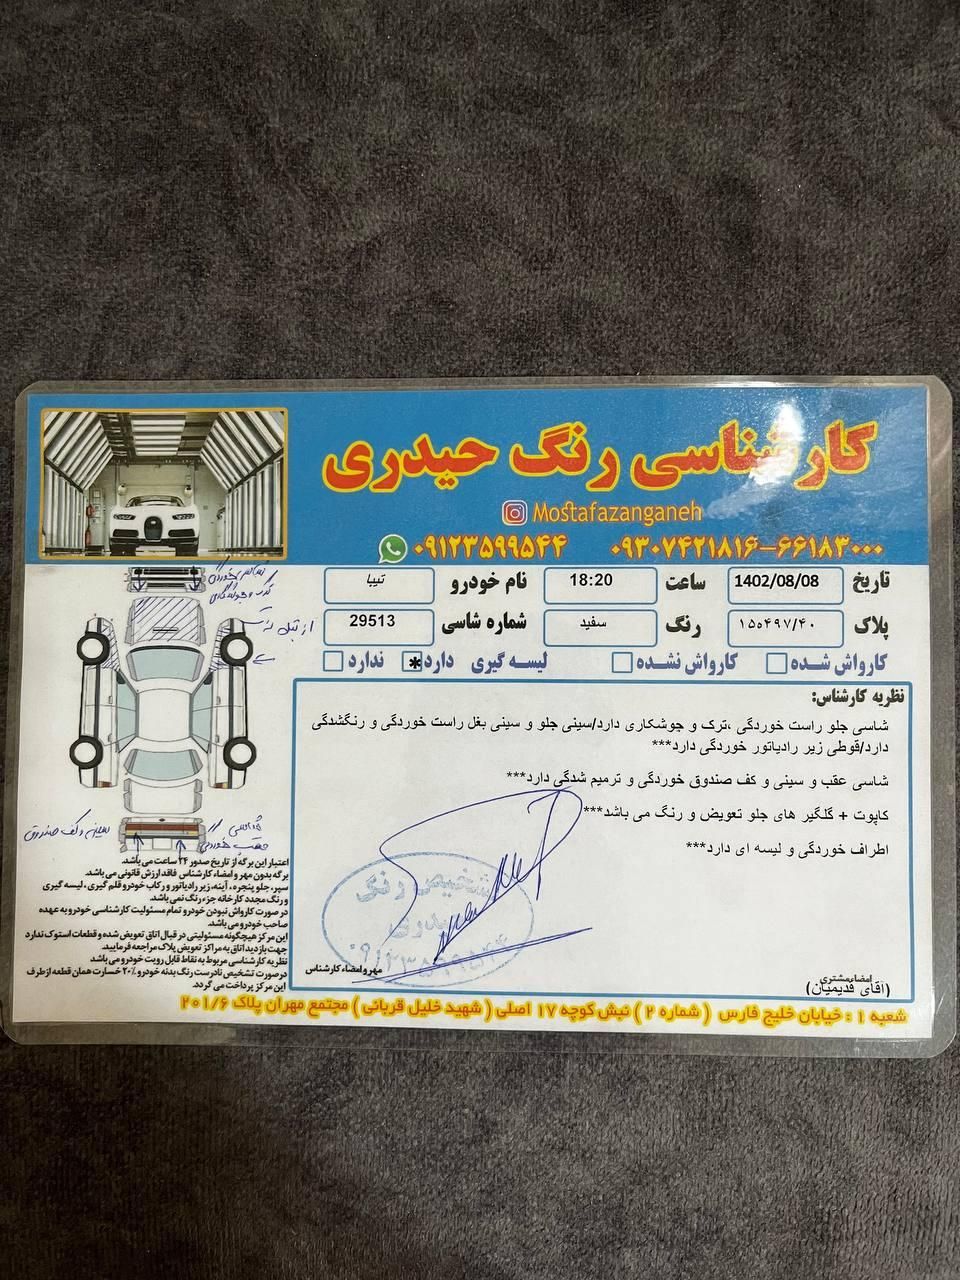 کارشناسی رنگ حیدری
Mostafazanganeh
۰۹۳۰۷۴۲۱۸۱۶-۶۶۱۸۳۰۰۰ ۰۹۱۲۳۵۹۹۵۴۴
تاریخ 1402/08/08 ساعت 18:20 نام خودرو تیبا
پلاک ۱۵۵۴۹۷/۴۰ رنگ سفید شماره شاسی 29513
کارواش شده کارواش نشده لیسه گیری دارد * ندارد
نظریه کارشناس:
شاسی جلو راست خوردگی ،ترک و جوشکاری دارد/سینی جلو و سینی بغل راست خوردگی و رنگشدگی
دارد/قوطی زیر رادیاتور خوردگی دارد***
شاسی عقب و سینی و کف صندوق خوردگی و ترمیم شدگی دارد***
کاپوت + گلگیر های جلو تعویض و رنگ می باشد***
اطراف خوردگی و لیسه ای دارد***
تشخیص رنگ
حیدری
۰۹۱۲۳۵۹۹۵۴۴
مهر و امضاء کارشناس
امضاء مشتری
(آقای قدیمیان)
خوردگی
سینی و کف صندوق
شاسی
عقب خوردگی
اعتبار این برگه از تاریخ صدور ۲۴ ساعت می باشد.
برگه بدون مهر و امضاء کارشناس فاقد ارزش قانونی می باشد.
سپر، جلو پنجره ، آینه، زیر رادیاتور و رکاب خودرو قلم گیری ، لیسه گیری
و رنگ مجدد کارخانه جزء رنگ نمی باشد.
در صورت کارواش نبودن خودرو تمام مسئولیت کارشناسی خودرو به عهده
صاحب خودرو می باشد.
این مرکز هیچگونه مسئولیتی در قبال اتاق تعویض شده و قطعات استوک ندارد
جهت بازدید اتاق به مراکز تعویض پلاک مراجعه فرمایید.
نظریه کارشناسی مربوط به نقاط قابل رویت خودرو می باشد
در صورت تشخیص نادرست رنگ بدنه خودرو ۲۰٪ خسارت همان قطعه از طرف
این مرکز پرداخت می گردد.
شعبه ۱ : خیابان خلیج فارس ( شماره ۲ ) نبش کوچه ۱۷ اصلی ( شهید خلیل قربانی ) مجتمع مهران پلاک ۲۰۱/۶